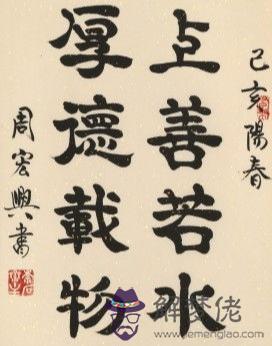 己亥陽春
上善若水
厚德載物
周宏興書
解夢佬
www.jiemenglao.com